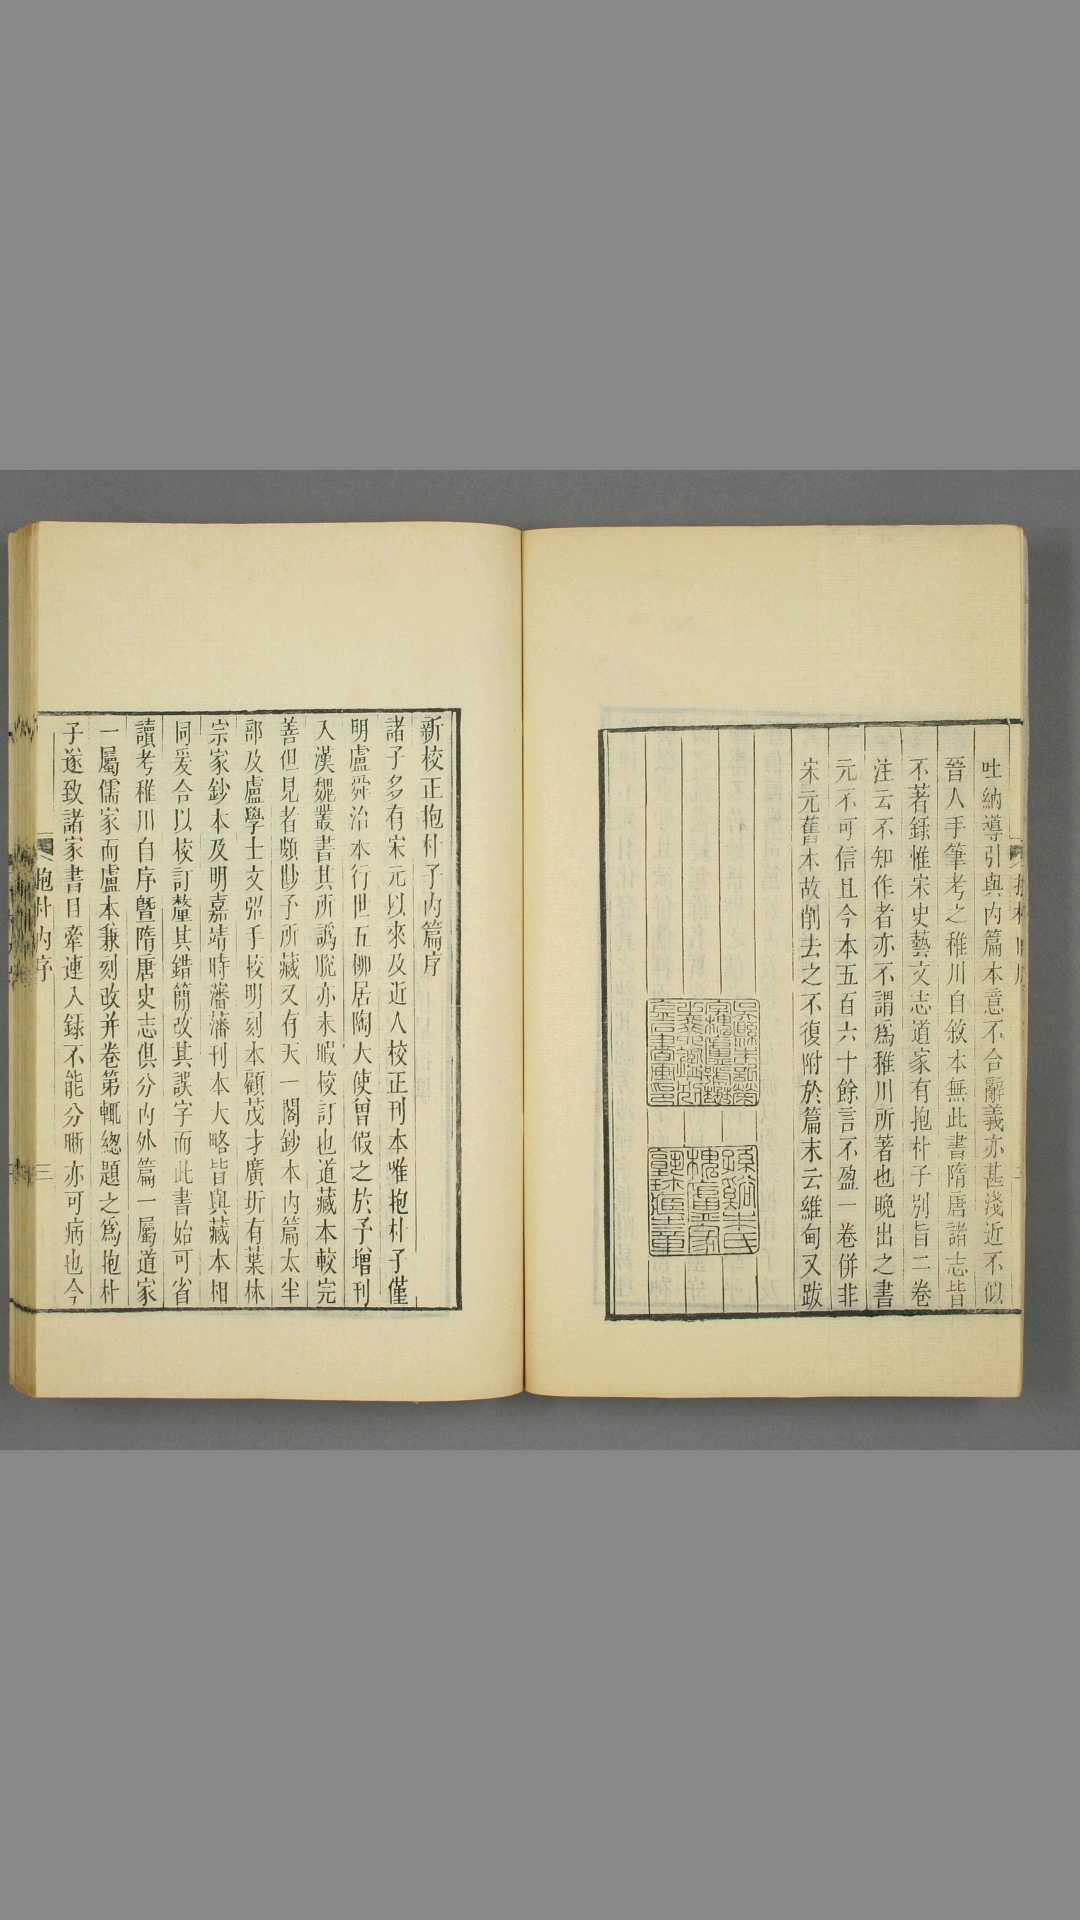 吐納導引與內篇本意不合辭義亦甚淺近不似
晉人手筆考之稚川自敘本無此書隋唐諸志皆
不著錄惟宋史藝文志道家有抱朴子別旨二卷
注云不知作者亦不謂爲稚川所著也晚出之書
元不可信且今本五百六十餘言不盈一卷併非
宋元舊本故削去之不復附於篇末云維甸又跋
孫谿朱氏
槐廬家
新校正抱朴子內篇序
諸子多有宋元以來及近人校正刊本唯抱朴子僅
明盧舜治本行世五柳居陶大使曾假之於予增刊
入漢魏叢書其所譌脫亦未暇校訂也道藏本較完
善但見者頗尠予所藏又有天一閣鈔本內篇太半
部及盧學士文弨手校明刻本顧茂才廣圻有葉林
宗家鈔本及明嘉靖時瀋藩刊本大略皆與藏本相
同爰合以校訂釐其錯簡改其誤字而此書始可省
讀考稚川自序曁隋唐史志俱分內外篇一屬道家
一屬儒家而盧本兼刻改并卷第輒總題之爲抱朴
子遂致諸家書目牽連入錄不能分晰亦可病也今
抱朴內序
三